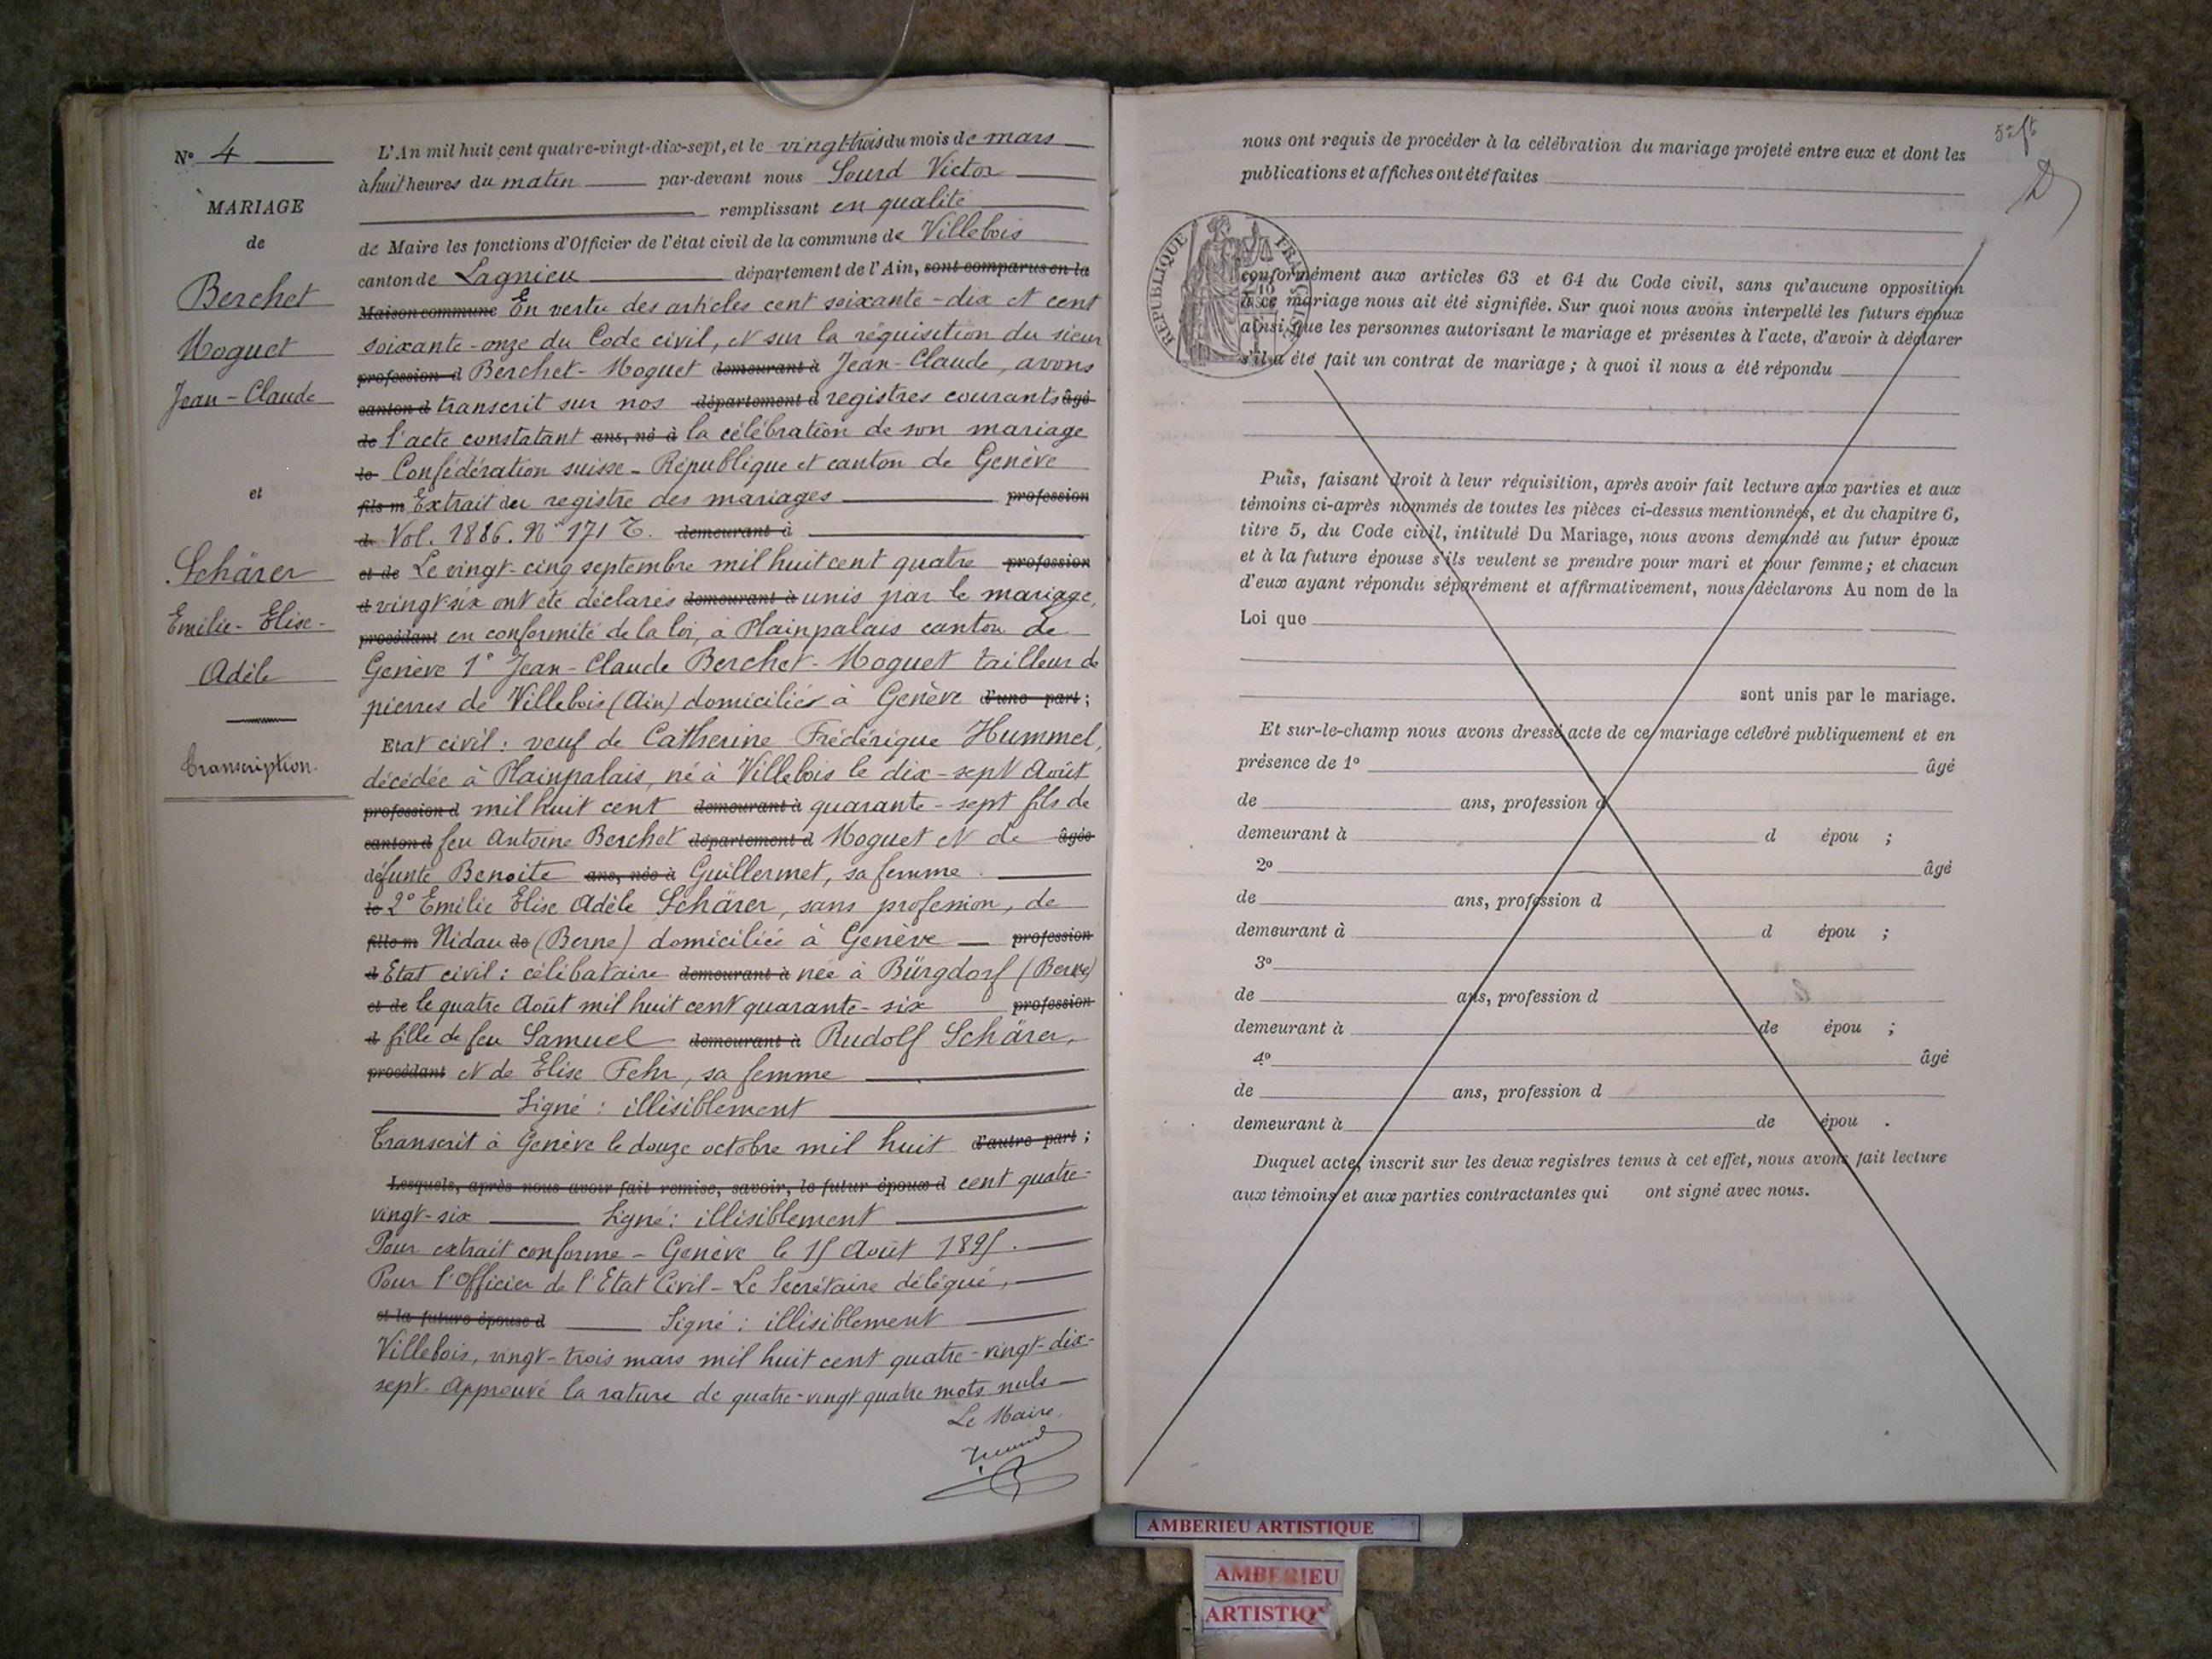 Nº 4
MARIAGE
de
Berchet
Moguet
Jean-Claude
et
Schärer
Emilie-Elise-
Adèle
Transcription.
L'An mil huit cent quatre-vingt-dix-sept, et le vingt-trois du mois de mars
à huit heures du matin par-devant nous Sourd Victor
remplissant en qualité
de Maire les fonctions d'Officier de l'état civil de la commune de Villebois
canton de Lagnieu département de l'Ain, sont comparus en la
Maison commune En vertu des articles cent soixante-dix et cent
soixante-onze du Code civil, et sur la réquisition du sieur
profession d Berchet-Moguet demeurant à Jean-Claude, avons
canton d transcrit sur nos département d registres courants âgé
de l'acte constatant ans, né à la célébration de son mariage
le Confédération suisse - République et canton de Genève
fils m Extrait du registre des mariages profession
d Vol. 1886. Nº 171 T. demeurant à
et de Le vingt-cinq septembre mil huit cent quatre profession
d vingt-six ont été déclarés demeurant à unis par le mariage,
procédant en conformité de la loi, à Plainpalais canton de
Genève 1º Jean-Claude Berchet-Moguet tailleur de
pierres de Villebois (Ain) domiciliés à Genève d'une part;
Etat civil : veuf de Catherine Frédérique Hummel,
décédée à Plainpalais, né à Villebois le dix-sept Août
profession d mil huit cent demeurant à quarante-sept fils de
canton d feu Antoine Berchet département d Moguet et de âgée
défunte Benoite ans, née à Guillermet, sa femme.
le 2º Emilie Elise Adèle Schärer, sans profession, de
fille m Nidau de (Berne) domiciliée à Genève profession
d Etat civil : célibataire demeurant à née à Bürgdorf (Berne)
et de le quatre Août mil huit cent quarante-six profession
d fille de feu Samuel demeurant à Rudolf Schärer,
procédant et de Elise Fehr, sa femme
Signé : illisiblement
Transcrit à Genève le douze octobre mil huit d'autre part ;
Lesquels, après nous avoir fait remise, savoir, le futur époux d cent quatre-
vingt-six Signé : illisiblement
Pour extrait conforme - Genève le 15 Août 1895.
Pour l'Officier de l'Etat Civil - Le Secrétaire délégué,
et la future épouse d Signé : illisiblement
Villebois, vingt-trois mars mil huit cent quatre-vingt-dix-
sept. Approuvé la rature de quatre-vingt quatre mots nuls
Le Maire,
nous ont requis de procéder à la célébration du mariage projeté entre eux et dont les
publications et affiches ont été faites
RÉPUBLIQUE FRANÇAISE
conformément aux articles 63 et 64 du Code civil, sans qu'aucune opposition
à ce mariage nous ait été signifiée. Sur quoi nous avons interpellé les futurs époux
ainsi que les personnes autorisant le mariage et présentes à l'acte, d'avoir à déclarer
s'il a été fait un contrat de mariage ; à quoi il nous a été répondu
Puis, faisant droit à leur réquisition, après avoir fait lecture aux parties et aux
témoins ci-après nommés de toutes les pièces ci-dessus mentionnées, et du chapitre 6,
titre 5, du Code civil, intitulé Du Mariage, nous avons demandé au futur époux
et à la future épouse s'ils veulent se prendre pour mari et pour femme ; et chacun
d'eux ayant répondu séparément et affirmativement, nous déclarons Au nom de la
Loi que
sont unis par le mariage.
Et sur-le-champ nous avons dressé acte de ce mariage célébré publiquement et en
présence de 1º âgé
de ans, profession d
demeurant à d épou ;
2º âgé
de ans, profession d
demeurant à d épou ;
3º
de ans, profession d
demeurant à de épou ;
4º âgé
de ans, profession d
demeurant à de épou .
Duquel acte, inscrit sur les deux registres tenus à cet effet, nous avons fait lecture
aux témoins et aux parties contractantes qui ont signé avec nous.
AMBERIEU ARTISTIQUE
AMBERIEU
ARTISTIQ